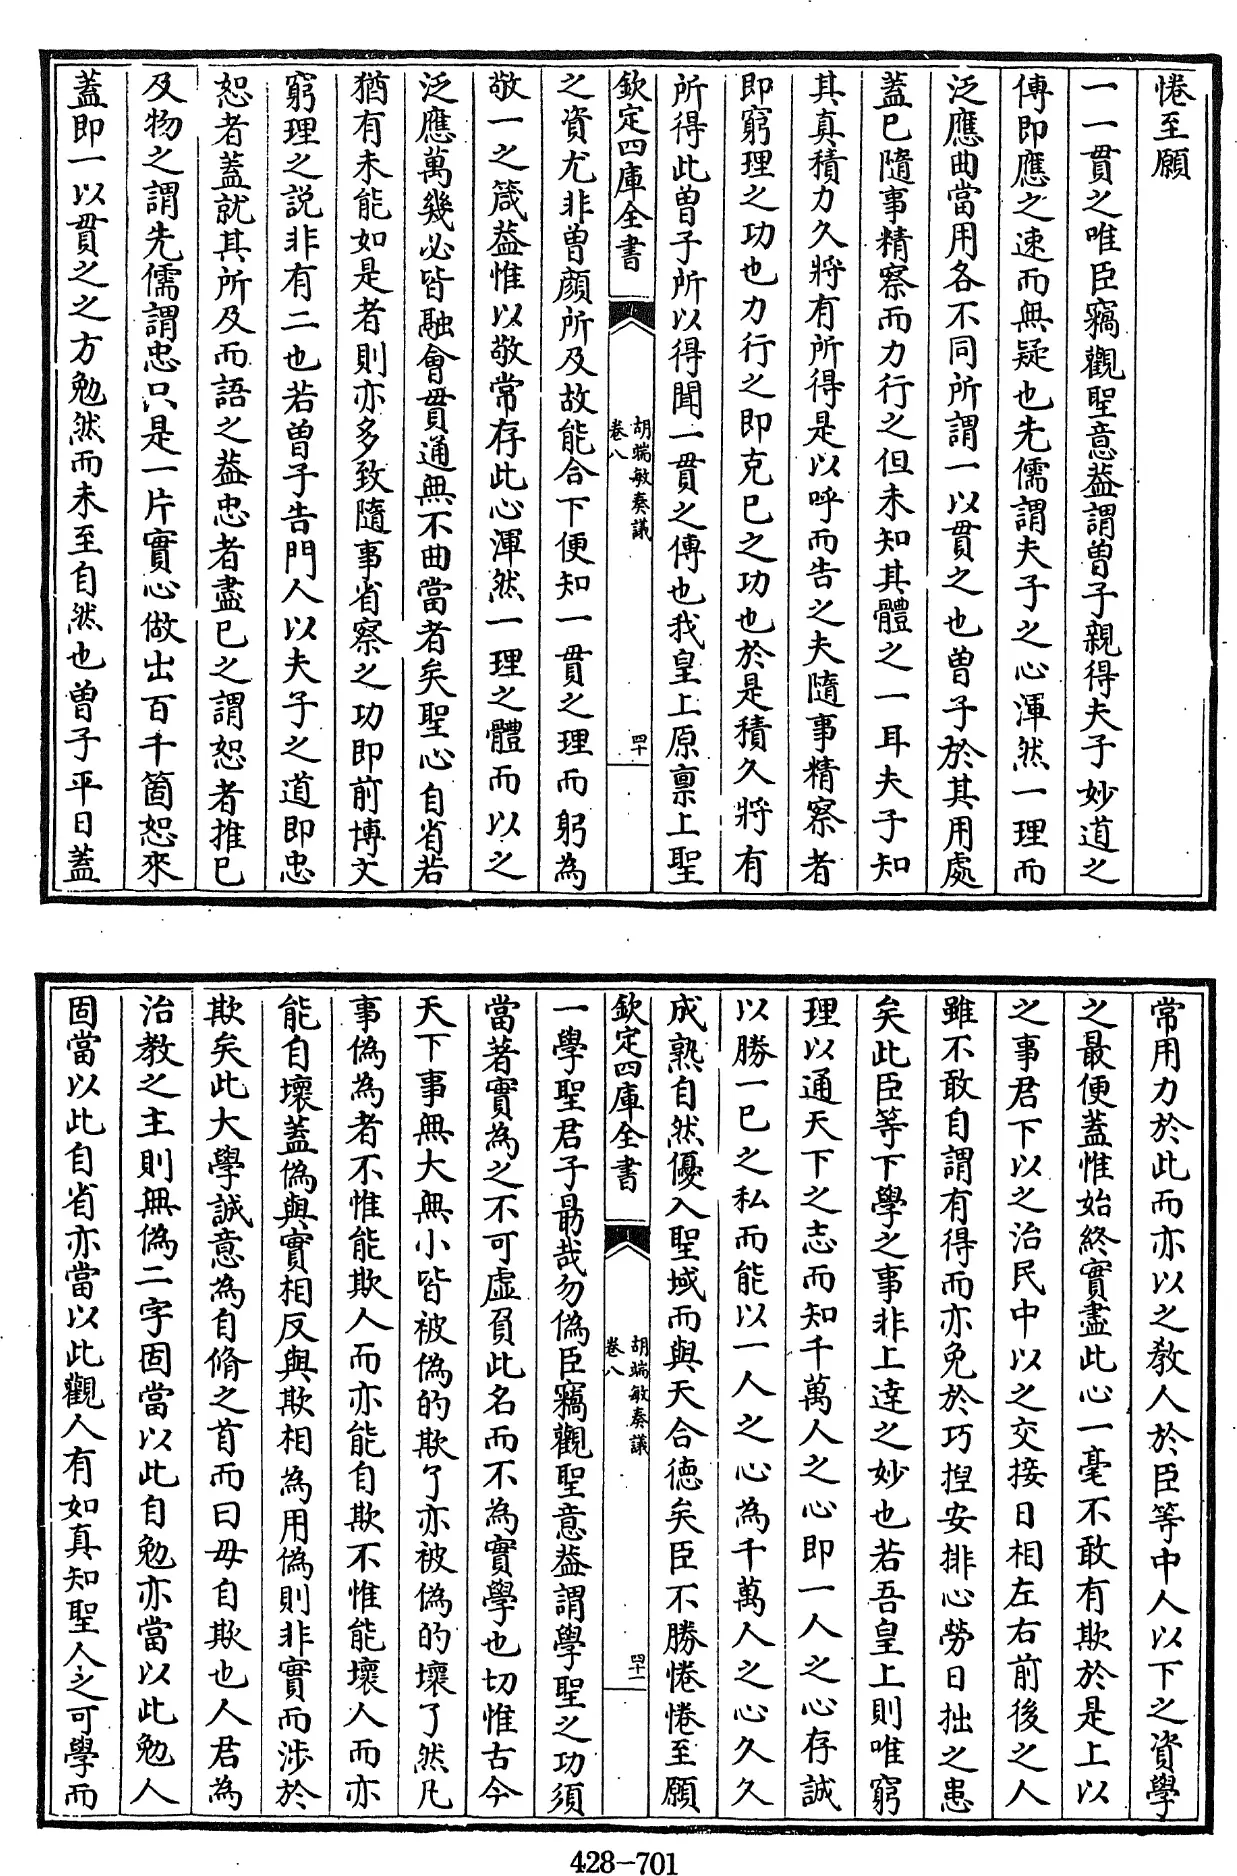 惓至願
一一貫之唯臣竊觀聖意葢謂曽子親得夫子妙道之
傳即應之速而無疑也先儒謂夫子之心渾然一理而
泛應曲當用各不同所謂一以貫之也曽子於其用處
蓋已隨事精察而力行之但未知其體之一耳夫子知
其真積力久將有所得是以呼而告之夫隨事精察者
即窮理之功也力行之即克已之功也於是積久將有
所得此曽子所以得聞一貫之傳也我皇上原禀上聖
欽定四庫全書
胡端敏奏議
卷八
四十
之資尤非曽顔所及故能合下便知一貫之理而躬為
敬一之箴葢惟以敬常存此心渾然一理之體而以之
泛應萬幾必皆融會貫通無不曲當者矣聖心自省若
猶有未能如是者則亦多致隨事省察之功即前博文
窮理之説非有二也若曽子告門人以夫子之道即忠
恕者蓋就其所及而語之葢忠者盡已之謂恕者推已
及物之謂先儒謂忠只是一片實心做出百千箇恕來
蓋即一以貫之之方勉然而未至自然也曽子平日蓋
常用力於此而亦以之教人於臣等中人以下之資學
之最便蓋惟始終實盡此心一毫不敢有欺於是上以
之事君下以之治民中以之交接日相左右前後之人
雖不敢自謂有得而亦免於巧揑安排心勞日拙之患
矣此臣等下學之事非上逹之妙也若吾皇上則唯窮
理以通天下之志而知千萬人之心即一人之心存誠
以勝一已之私而能以一人之心為千萬人之心久久
成熟自然優入聖域而與天合徳矣臣不勝惓惓至願
欽定四庫全書
胡端敏奏議
卷八
四十一
一學聖君子朂哉勿偽臣竊觀聖意葢謂學聖之功須
當著實為之不可虚負此名而不為實學也切惟古今
天下事無大無小皆被偽的欺了亦被偽的壞了然凡
事偽為者不惟能欺人而亦能自欺不惟能壞人而亦
能自壞蓋偽與實相反與欺相為用偽則非實而涉於
欺矣此大學誠意為自脩之首而曰毋自欺也人君為
治教之主則無偽二字固當以此自勉亦當以此勉人
固當以此自省亦當以此觀人有如真知聖人之可學而
428-701